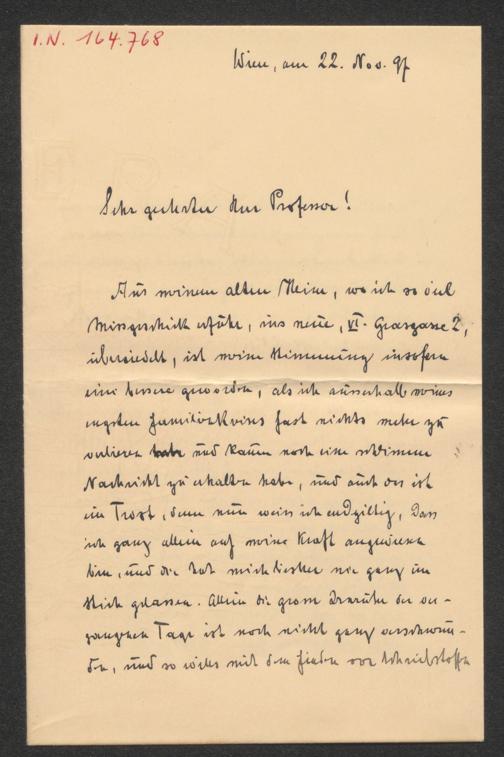 I.N. 164.768
Wien, am 22. Nov. 97
Sehr geehrter Herr Professor!
Aus meinem alten Heim, wo ich so viel
Missgeschick erfuhr, ins neue, VI. Grasgasse 2,
übersiedelt, ist meine Stimmung insofern
eine bessere geworden, als ich ausserhalb meines
engsten Familienkreises fast nichts mehr zu
verlieren und kaum noch eine schlimme
Nachricht zu erhalten habe, und auch das ist
ein Trost, denn nun weiss ich endgiltig, dass
ich ganz allein auf meine Kraft angewiesen
bin, und die hat mich bisher nie ganz im
Stich gelassen. Allein die grosse Unruhe der ver-
gangenen Tage ist noch nicht ganz verschwun-
den, und so will es mit dem Finden von Schreibstoffen